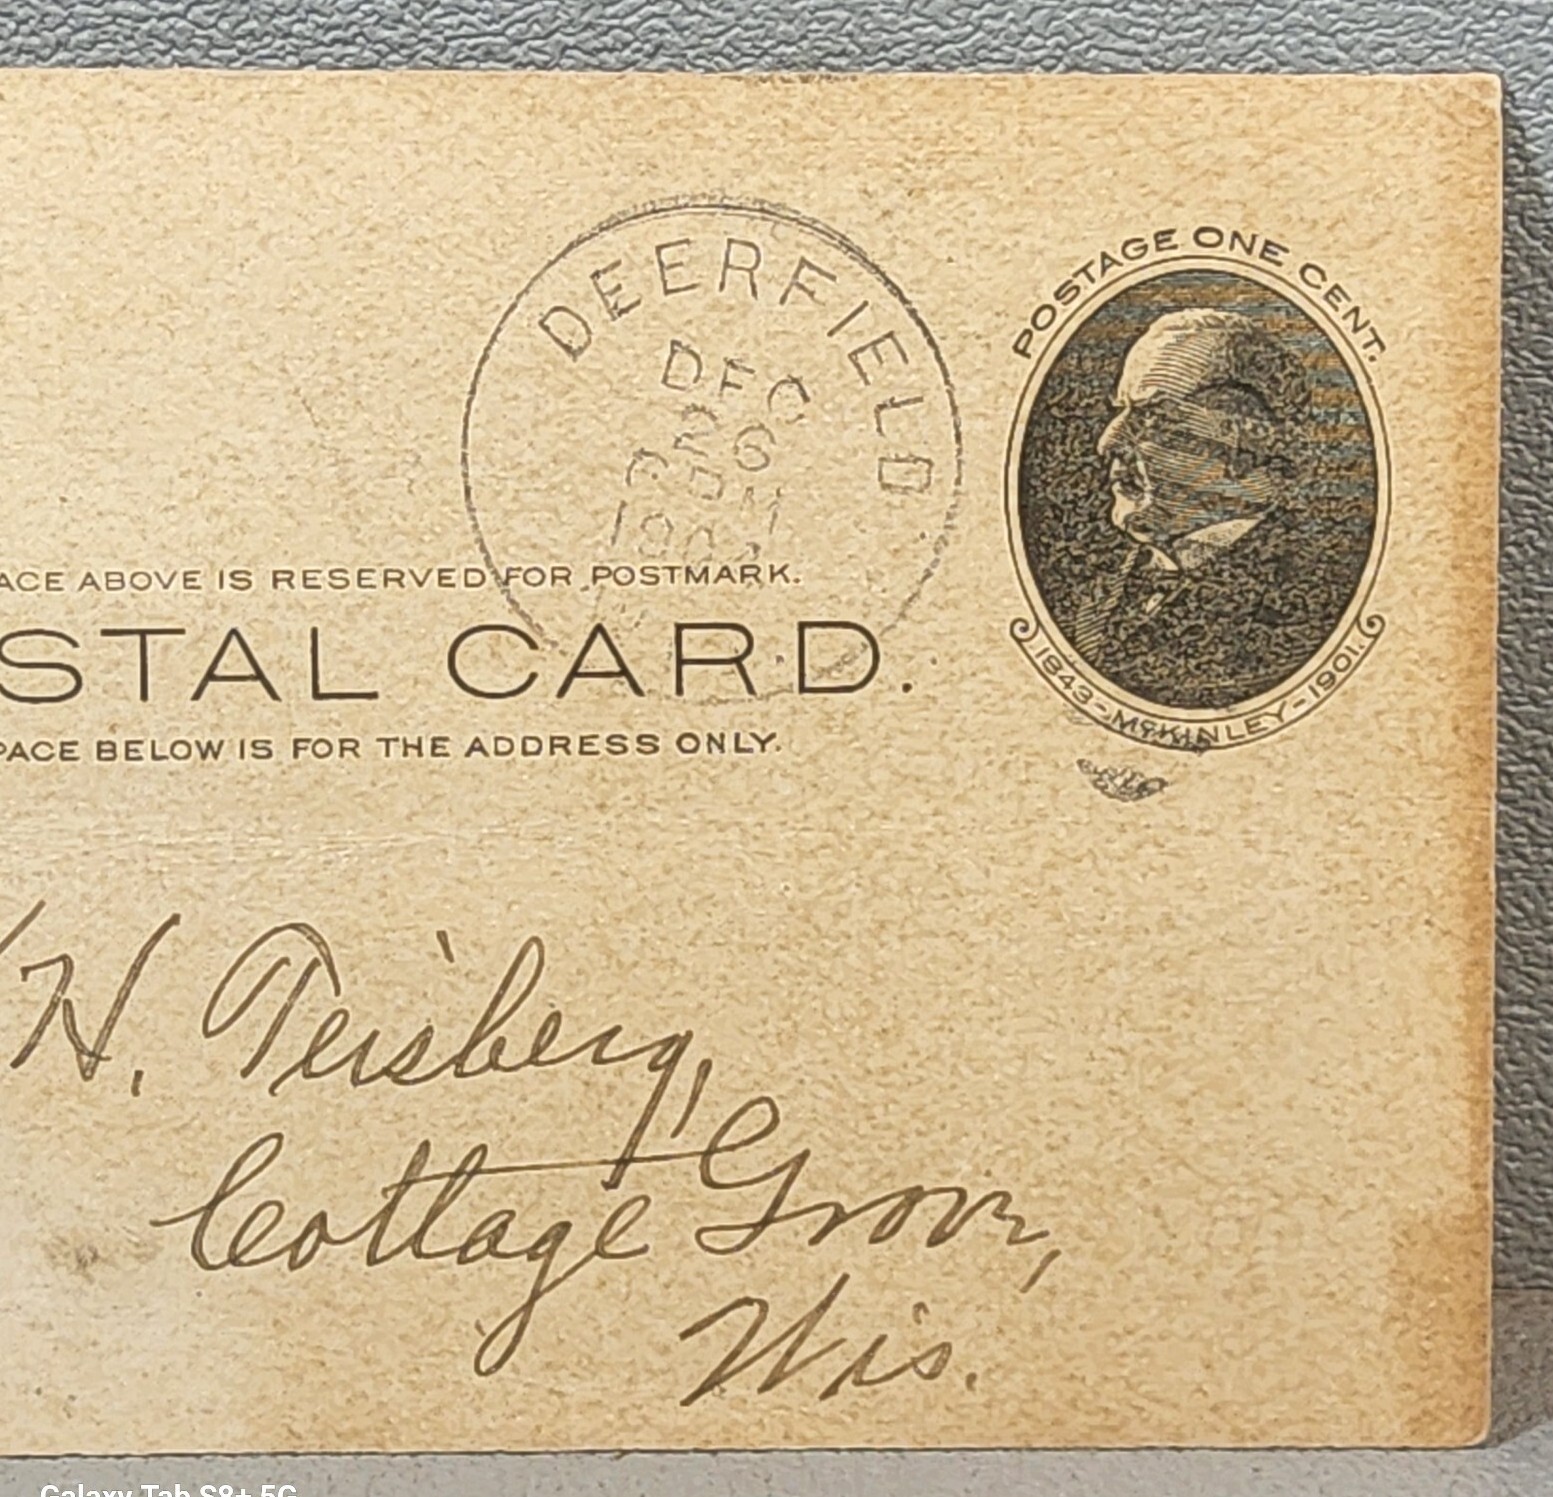 POSTAGE ONE CENT.
DEERFIELD
DEC
26
PM
ACE ABOVE IS RESERVED FOR POSTMARK.
STAL CARD.
1843-McKINLEY-1901.
PACE BELOW IS FOR THE ADDRESS ONLY.
H. Teisberg,
Cottage Grove,
Wis.
Galaxy Tab S8+ 5G